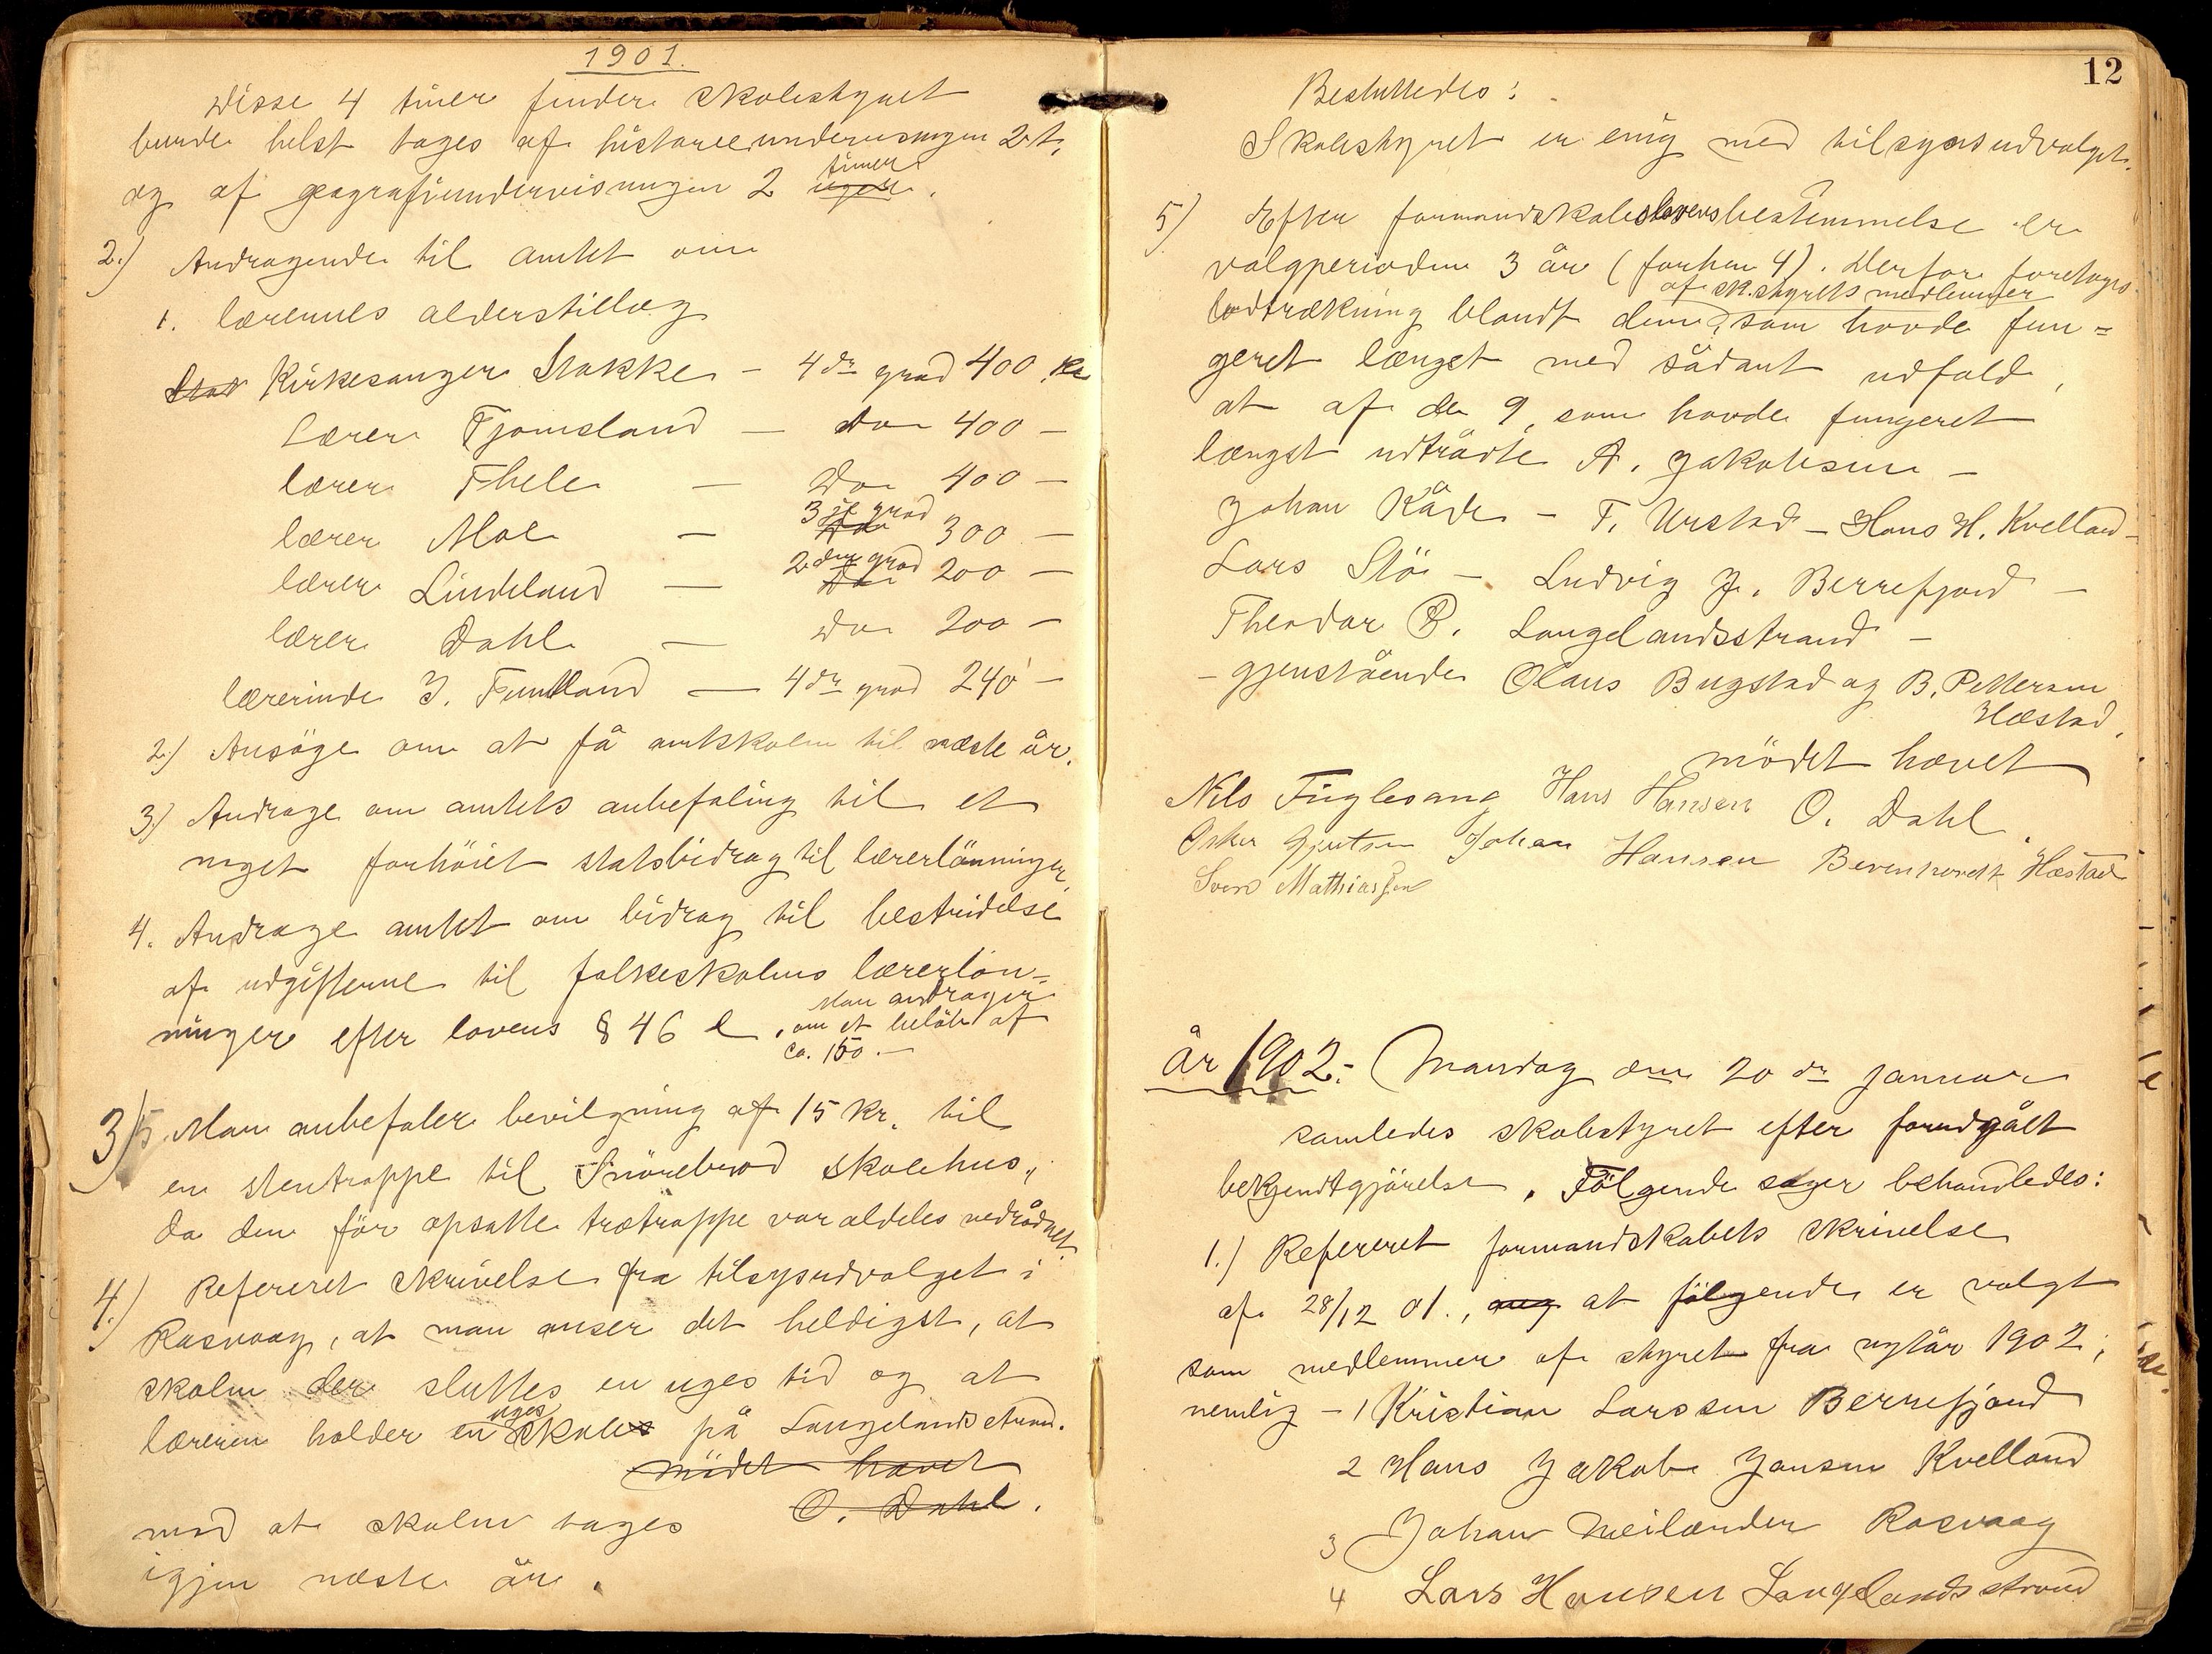 1901.
Disse 4 timer finder skolestyret
burde helst tages af historieundervisningen 2 t.
og af geografiundervisningen 2 timer uger.
2.) Andragende til amtet om
1. lærernes alderstillæg
Kirkesanger Stakke - 4de grad 400 kr
lærer Fjomsland - do 400 -
lærer Thele - do 400 -
lærer Moe - 3je grad 300 -
lærer Lindeland - 2den grad 200 -
lærer Dahl - do 200 -
lærerinde J. Funtland - 4de grad 240 -
2.) Ansöge om at få amtskolen til næste år.
3.) Andrage om amtets anbefaling til et
noget forhöiet statsbidrag til lærerlönninger
4. Andrage amtet om bidrag til bestridelse
af udgifterne til folkeskolens lærerlön=
ninger efter lovens § 46 e, man andrager
om et belöb af
ca. 150.-
3/5 Man anbefaler bevilgning af 15 kr. til
en stentrappe til Snörebrød skolehus,
da den för opsatte trætrappe var aldeles nedrådnet.
4.) Refereret skrivelse fra tilsynsudvalget i
Rasvaag, at man anser det heldigst, at
skolen der sluttes en uges tid og at
læreren holder en uges skole på Langelandsstrand.
mödet hævet
O. Dahl.
mod at skolen tages
igjen næste år.
12
Besluttedes:
Skolestyret er enig med tilsynsudvalget.
5) Efter formandskabslovens bestemmelse er
valgperioden 3 år (forhen 4). Derfor foretoges
lodtrækning blandt dem, af sk.styrets medlemmer som havde fun=
geret længst med sådant udfald,
at af de 9, som havde fungeret
længst udtrådte A. Jakobsen -
Johan Råde - T. Urstad - Hans H. Kvelland -
Lars Stö - Ludvig J. Berrefjord -
Theodor B. Langelandsstrand -
- gjenstående Olaus Bugstad og B. Petersen
Hæstad.
mödet hævet
Nils Fuglesang Hans Hansen O. Dahl.
Gjertsen Johan Hansen Berenhardt Hæstad
Sven Mathiassen
År 1902.- Mandag den 20de januar
samledes skolestyret efter forudgået
bekjendtgjörelse. Fölgende sager behandledes:
1.) Refereret formandskabets skrivelse
af 28/12 01., ang at fölgende er valgt
som medlemmer af styret fra nytår 1902;
nemlig - 1 Kristian Larssen Berrefjord
2 Hans Jakob Jansen Kvelland
3 Johan Meilænder Rasvaag
4 Lars Hansen Langelandsstrand